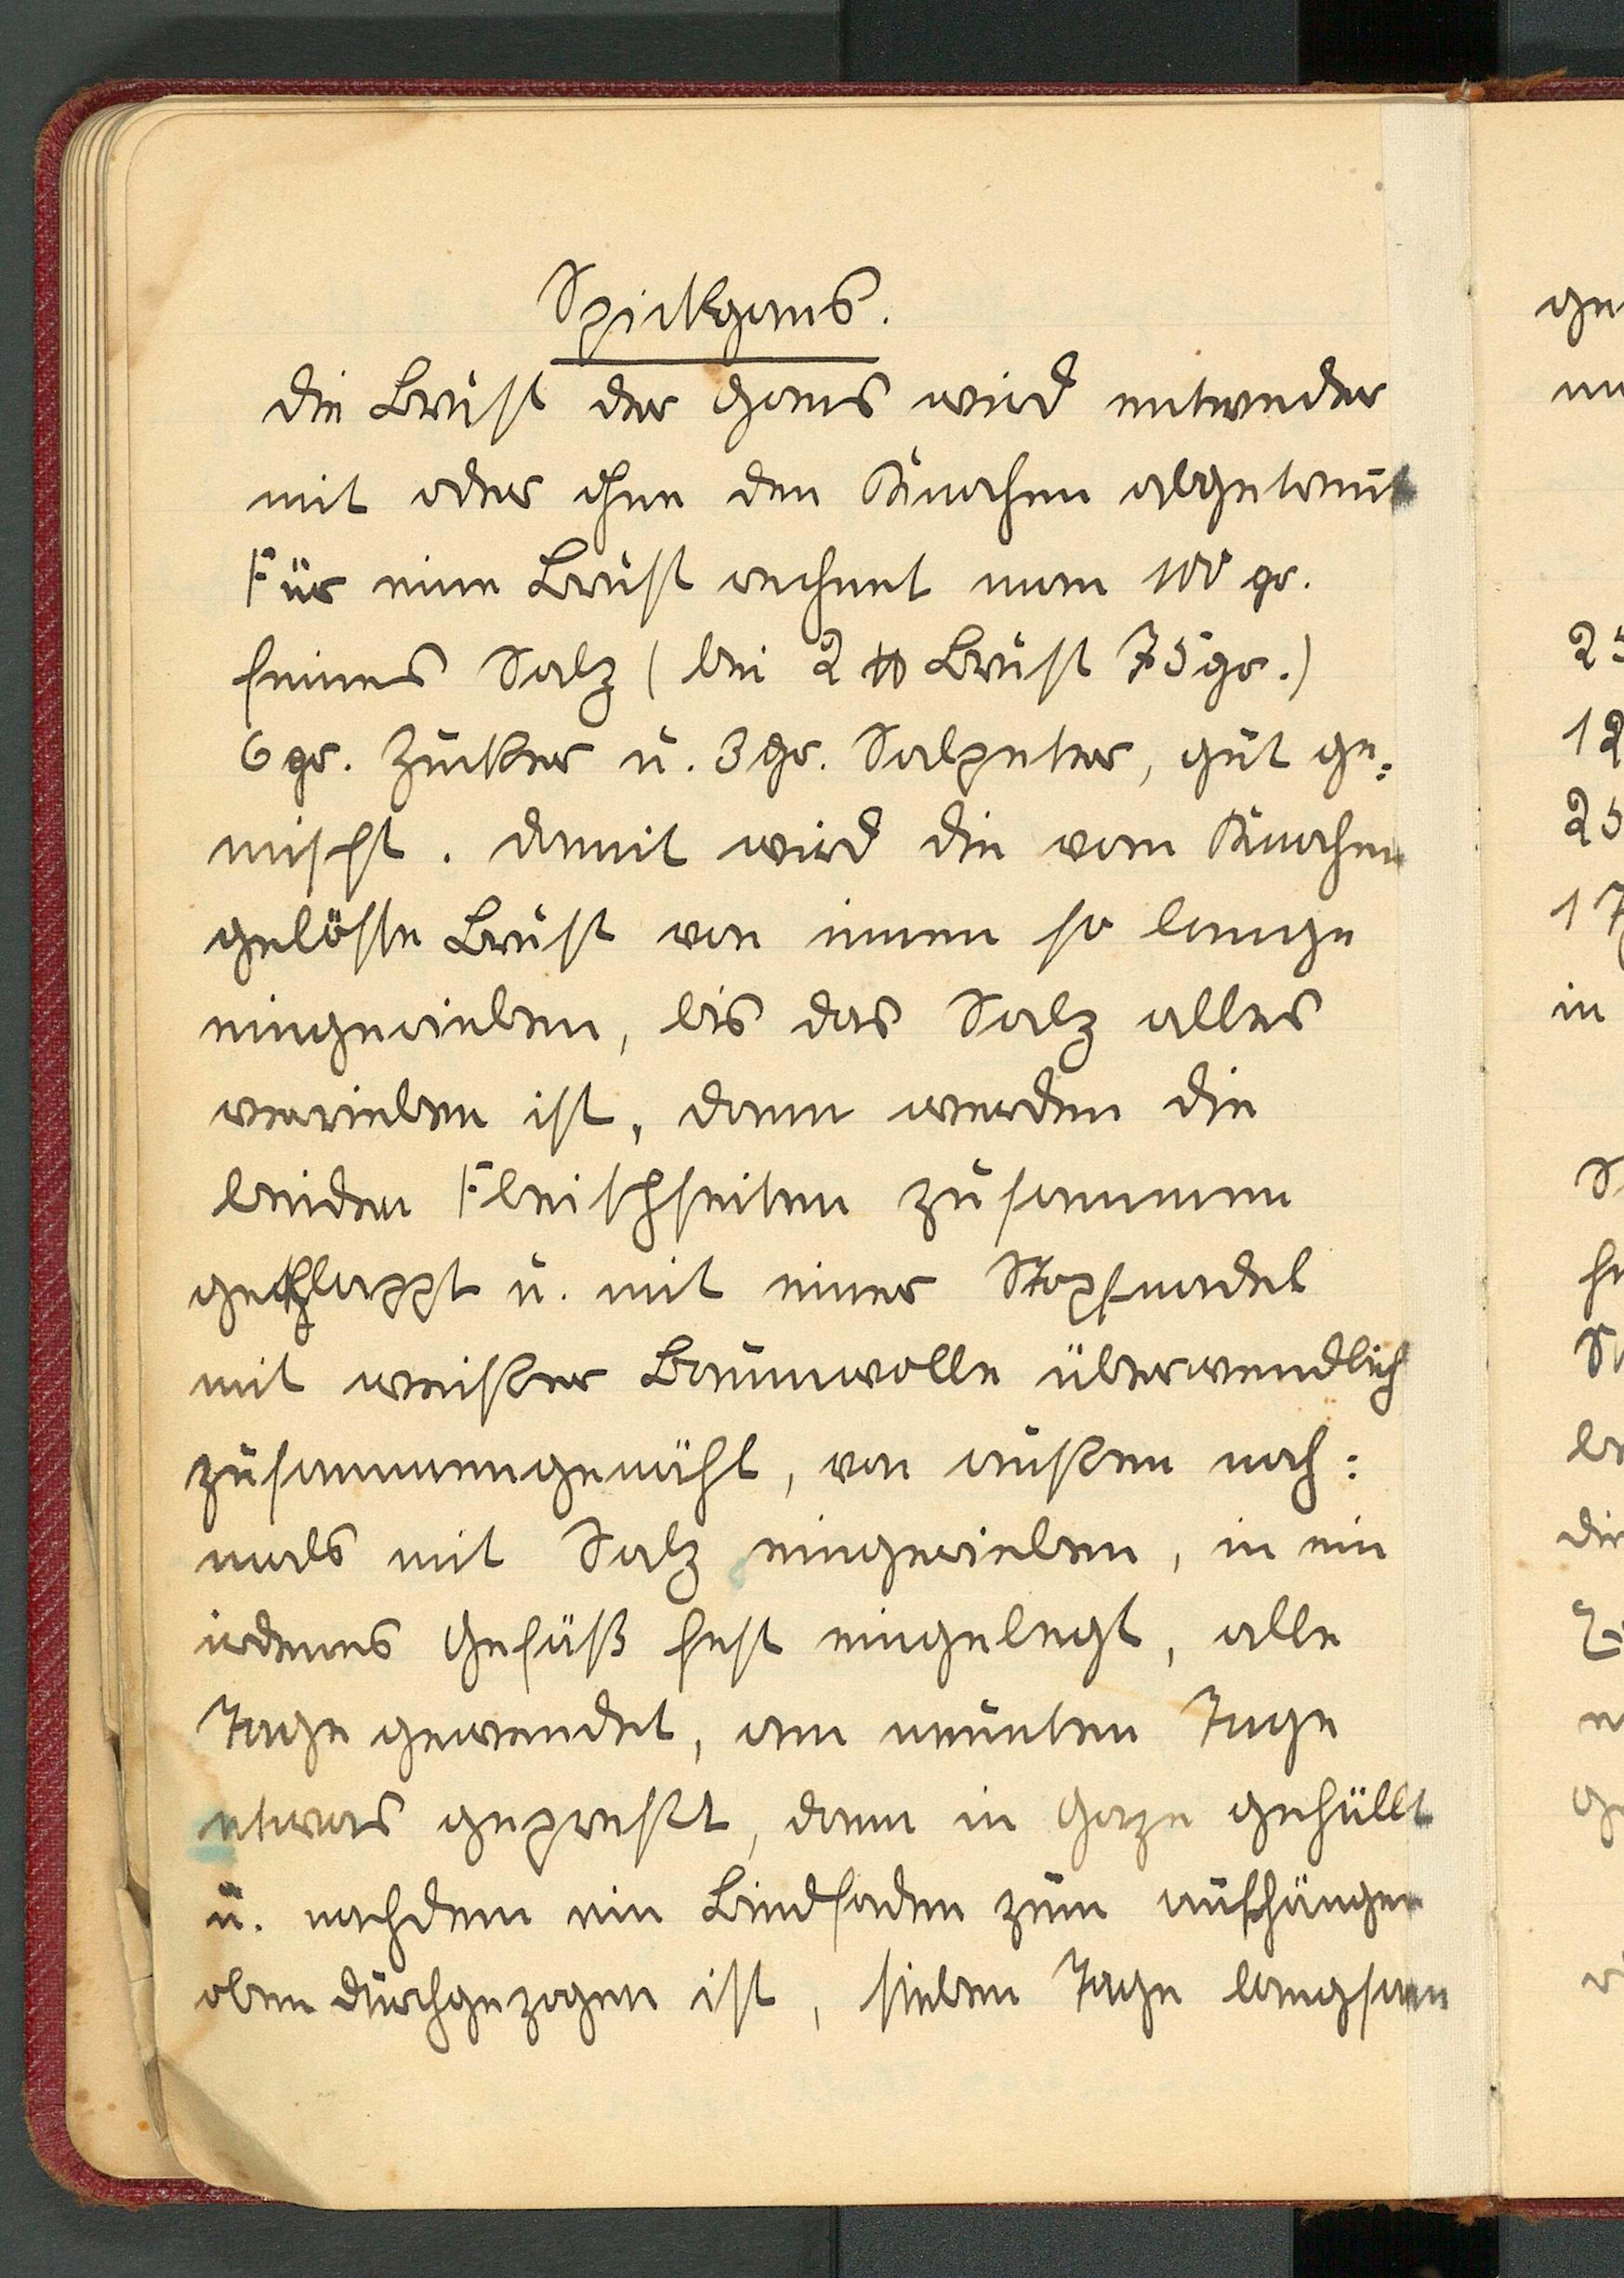 Spickgans.
Die Brust der Gans wird entweder
mit oder ohne den Knochen abgetrennt
Für eine Brust rechnet man 100 gr.
feines Salz (bei 2 ℔ Brust 75 gr.)
6 gr. Zucker u. 3 gr. Salpeter, gut ge:
mischt. Damit wird die vom Knochen
gelöste Brust von innen so lange
eingerieben, bis das Salz alles
verrieben ist, dann werden die
beiden Fleischseiten zusammen
geklappt u. mit einer Stopfnadel
mit weißer Baumwolle überwendlich
zusammengenäht, von außen noch:
mals mit Salz eingerieben, in ein
irdenes Gefäß fest eingelegt, alle
Tage gewendet, am neunten Tage
etwas gepreßt, dann in Gaze gehüllt
u. nachdem ein Bindfaden zum aufhängen
oben durchgezogen ist, sieben Tage langsam
25
12
25
17
in